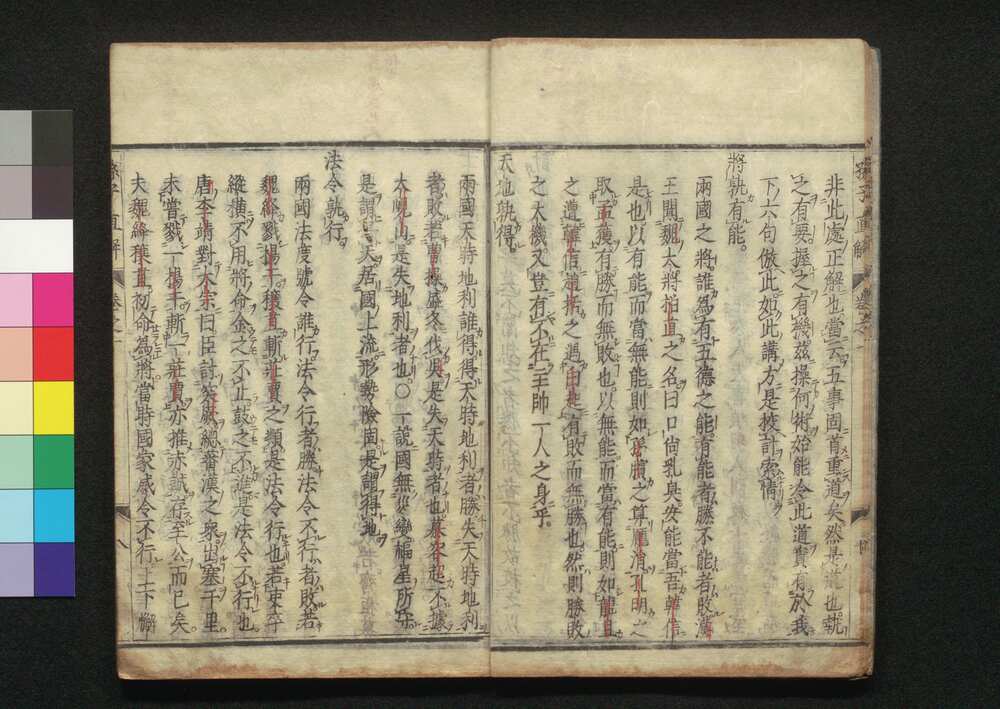 非此處正解也當云五事固首重道矣然是道也孰
之有要握之有幾茲操何術始能令此道實有於我
下六句倣此如此講方是挍計索情
將孰有能
兩國之將誰為有五德之能有能者勝不能者敗漢
王聞魏大將栢直之名曰口尚乳臭安能當吾韓信
是也以有能而當無能則如孫臏之算龐涓孔明之
取孟獲有勝而無敗也以無能而當有能則如龍且
之遭韓信趙括之遇白起有敗而無勝也然則勝敗
之大機又豈有不在主帥一人之身乎
天地孰得
兩國天時地利誰得得天時地利者勝失天時地利
者敗若曹操盛冬伐吳是失天時者也慕容超不據
大峴山是失地利者也〇一說國無災變福星所在
是謂得天居國上流形勢險固是謂得地
法令孰行
兩國法度號令誰行法令行者勝法令不行者敗若
魏絳戮揚干穰苴斬莊賈之類是法令行也若束卒
縱橫不用將命金之不止鼓之不進是法令不行也
唐李靖對太宗曰臣討突厥總蕃漢之衆出塞千里
未嘗戮一揚干斬一莊賈亦推赤誠存至公而已矣
夫魏絳穰苴初命為將當時國家威令不行上下懈
孫子直解 卷之一 八